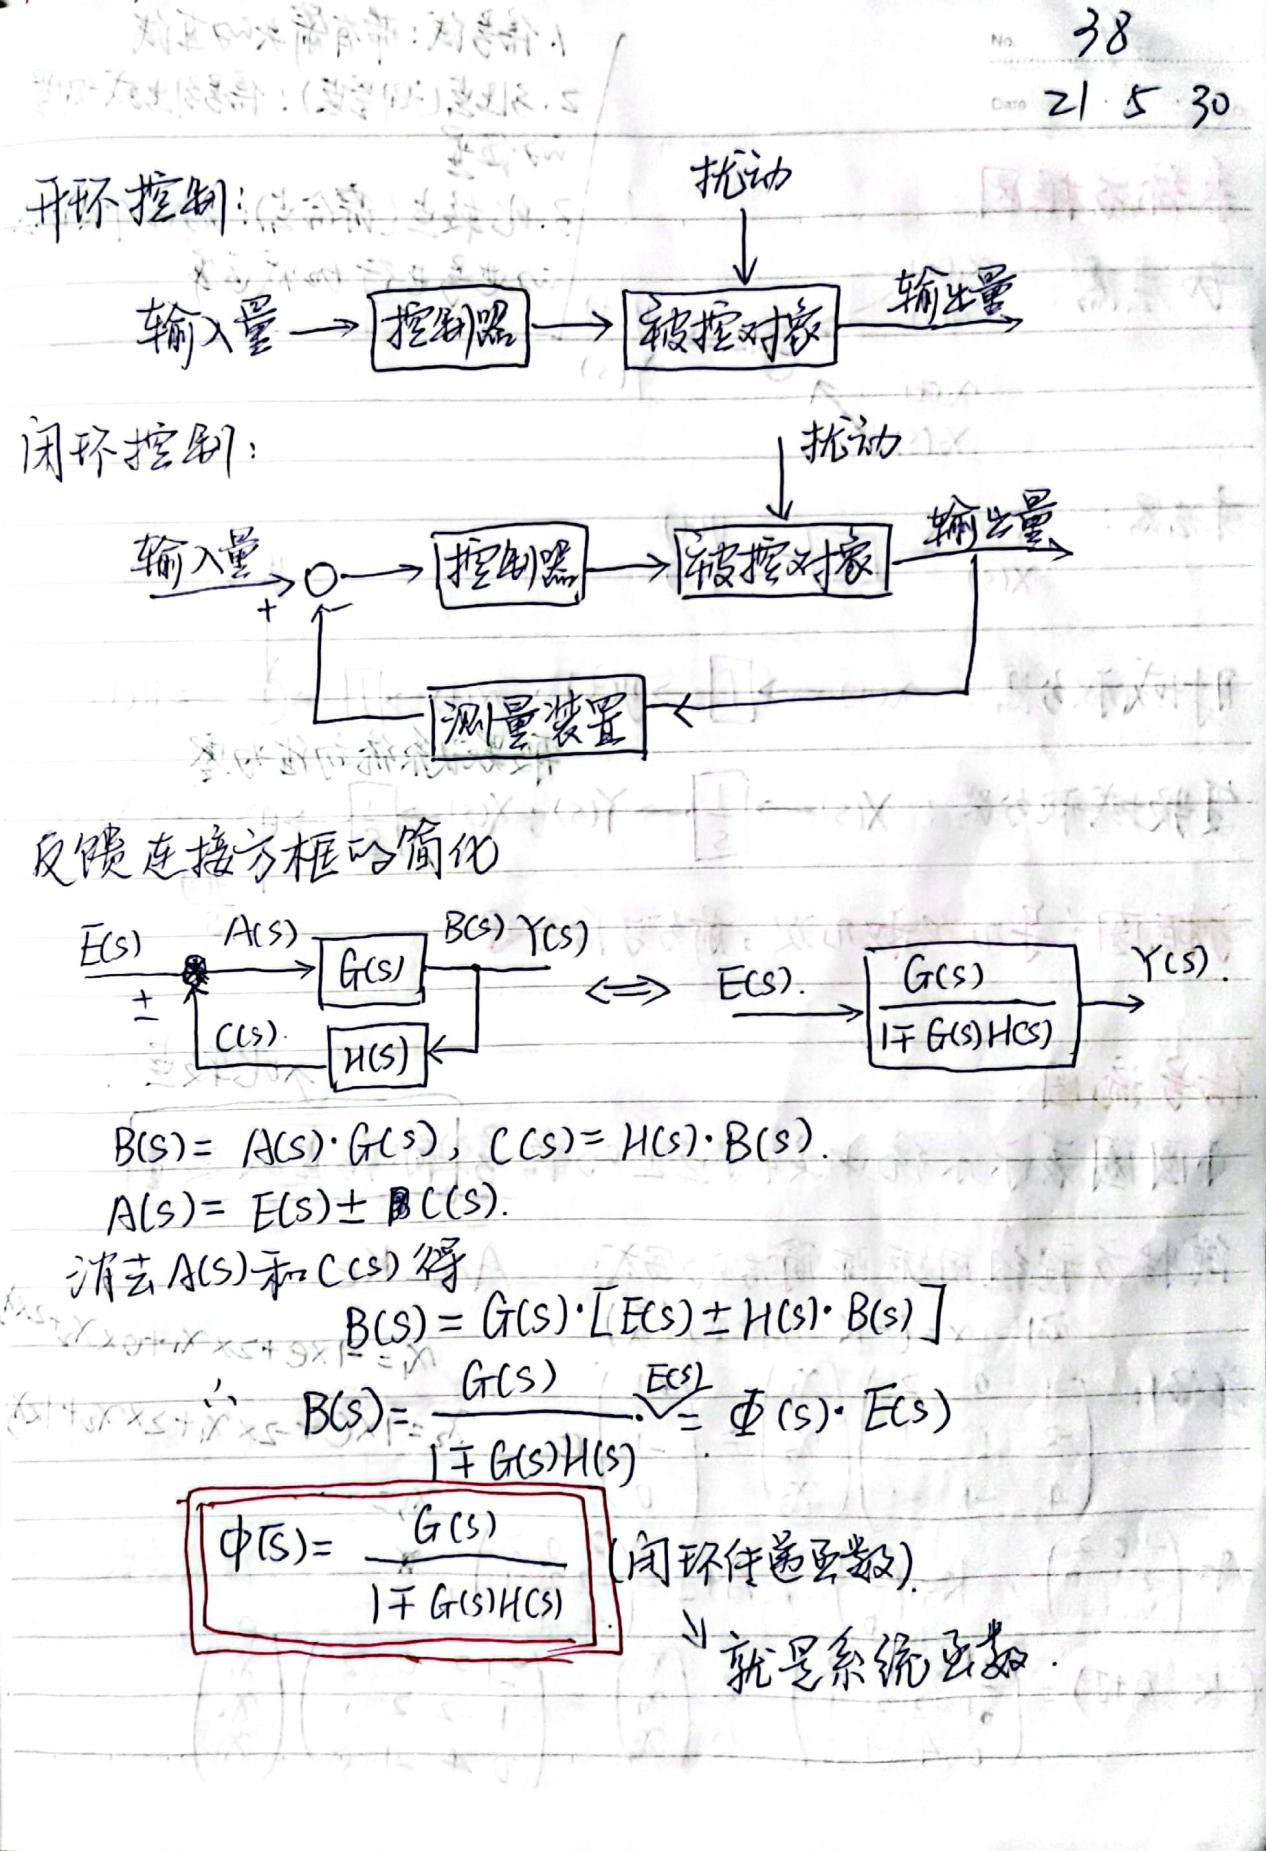 No. 38
Date 21.5.30
开环控制:
扰动
输入量 → 控制器 → 被控对象 输出量
闭环控制:
扰动
输入量 + - 控制器 → 被控对象 输出量
测量装置
反馈连接方框的简化
E(s) ± A(s) G(s) B(s) Y(s) ⇔ E(s). G(s) / 1∓G(s)H(s) Y(s).
C(s). H(s)
B(s)= A(s)·G(s), C(s)= H(s)·B(s).
A(s)= E(s)± C(s).
消去A(s)和C(s)得
B(s)= G(s)·[E(s)±H(s)·B(s)]
∴ B(s)= G(s) / 1∓G(s)H(s) ·E(s) = Φ(s)·E(s)
Φ(s)= G(s) / 1∓G(s)H(s) (闭环传递函数).
↘ 就是系统函数.